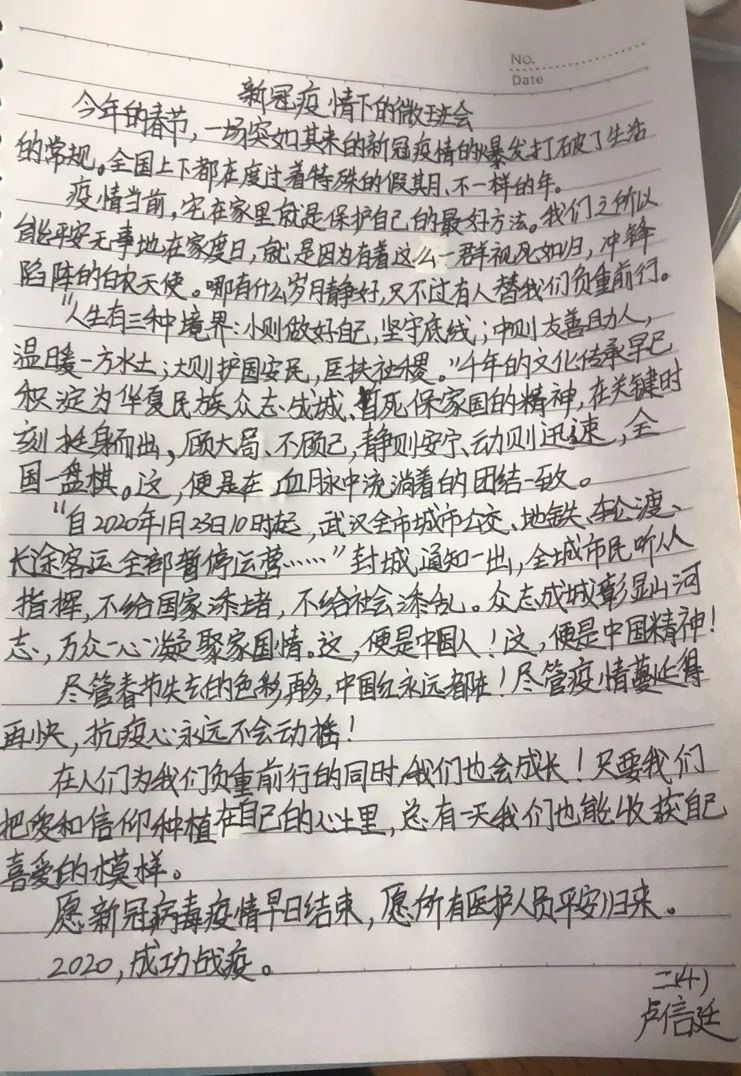 No.
Date
新冠疫情下的微班会
今年的春节,一场突如其来的新冠疫情的爆发打破了生活
的常规。全国上下都在度过着特殊的假期、不一样的年。
疫情当前,宅在家里就是保护自己的最好方法。我们之所以
能平安无事地在家度日,就是因为有着这么一群视死如归,冲锋
陷阵的白衣天使。哪有什么岁月静好,只不过有人替我们负重前行。
"人生有三种境界:小则做好自己,坚守底线;中则友善助人,
温暖一方水土;大则护国安民,匡扶社稷。"千年的文化传承早已
积淀为华夏民族众志成城、誓死保家国的精神,在关键时
刻挺身而出,顾大局、不顾己,静则安宁、动则迅速,全
国一盘棋。这,便是在血脉中流淌着的团结一致。
"自2020年1月23日10时起,武汉全市城市公交、地铁、轮渡、
长途客运全部暂停运营……"封城通知一出,全城市民听从
指挥,不给国家添堵,不给社会添乱。众志成城彰显山河
志,万众一心凝聚家国情。这,便是中国人!这,便是中国精神!
尽管春节失去的色彩再多,中国红永远都在!尽管疫情蔓延得
再快,抗疫心永远不会动摇!
在人们为我们负重前行的同时,我们也会成长!只要我们
把爱和信仰种植在自己的心土里,总有一天我们也能收获自己
喜爱的模样。
愿新冠病毒疫情早日结束,愿所有医护人员平安归来。
2020,成功战疫。
二(4)
卢信廷